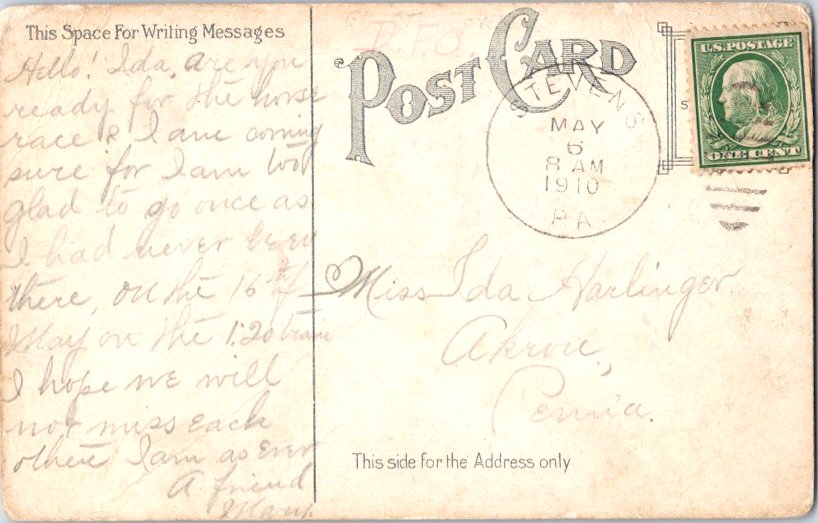 This Space For Writing Messages
Hello! Ida, are you
ready for the horse
race & I am coming
sure for I am too
glad to go once as
I had never been
there, on the 16 of
May on the 1:20 train
I hope we will
not miss each
other I am as ever
A friend
Mary.
I.F.O.
POST CARD
U.S. POSTAGE
ONE CENT
STEVENS
MAY
6
8 AM
1910
PA
Miss Ida Harlinger
Akron,
Penna.
This side for the Address only